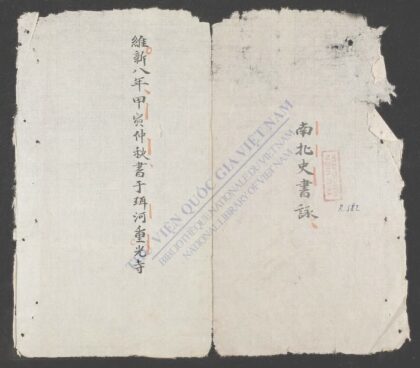 南北史書詠
維新八年甲寅仲秋書于珥河重光寺
THƯ VIỆN QUỐC GIA VIỆT NAM
BIBLIOTHÈQUE NATIONALE DU VIETNAM
NATIONAL LIBRARY OF VIETNAM